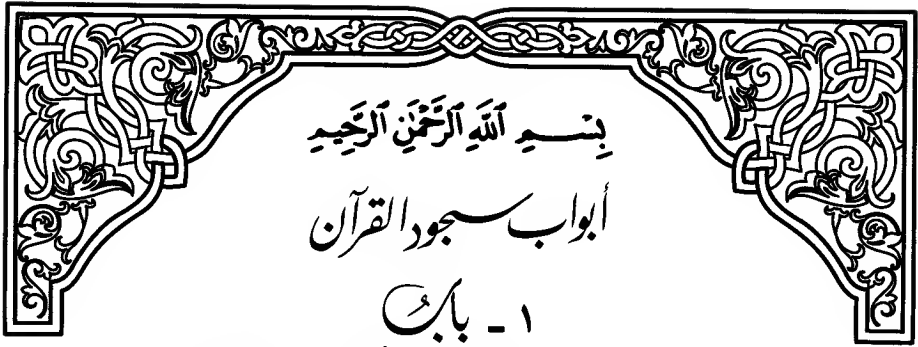 بِسْمِ ٱللَّهِ ٱلرَّحْمَٰنِ ٱلرَّحِيمِ
أبواب سجود القرآن
١ - بابُ